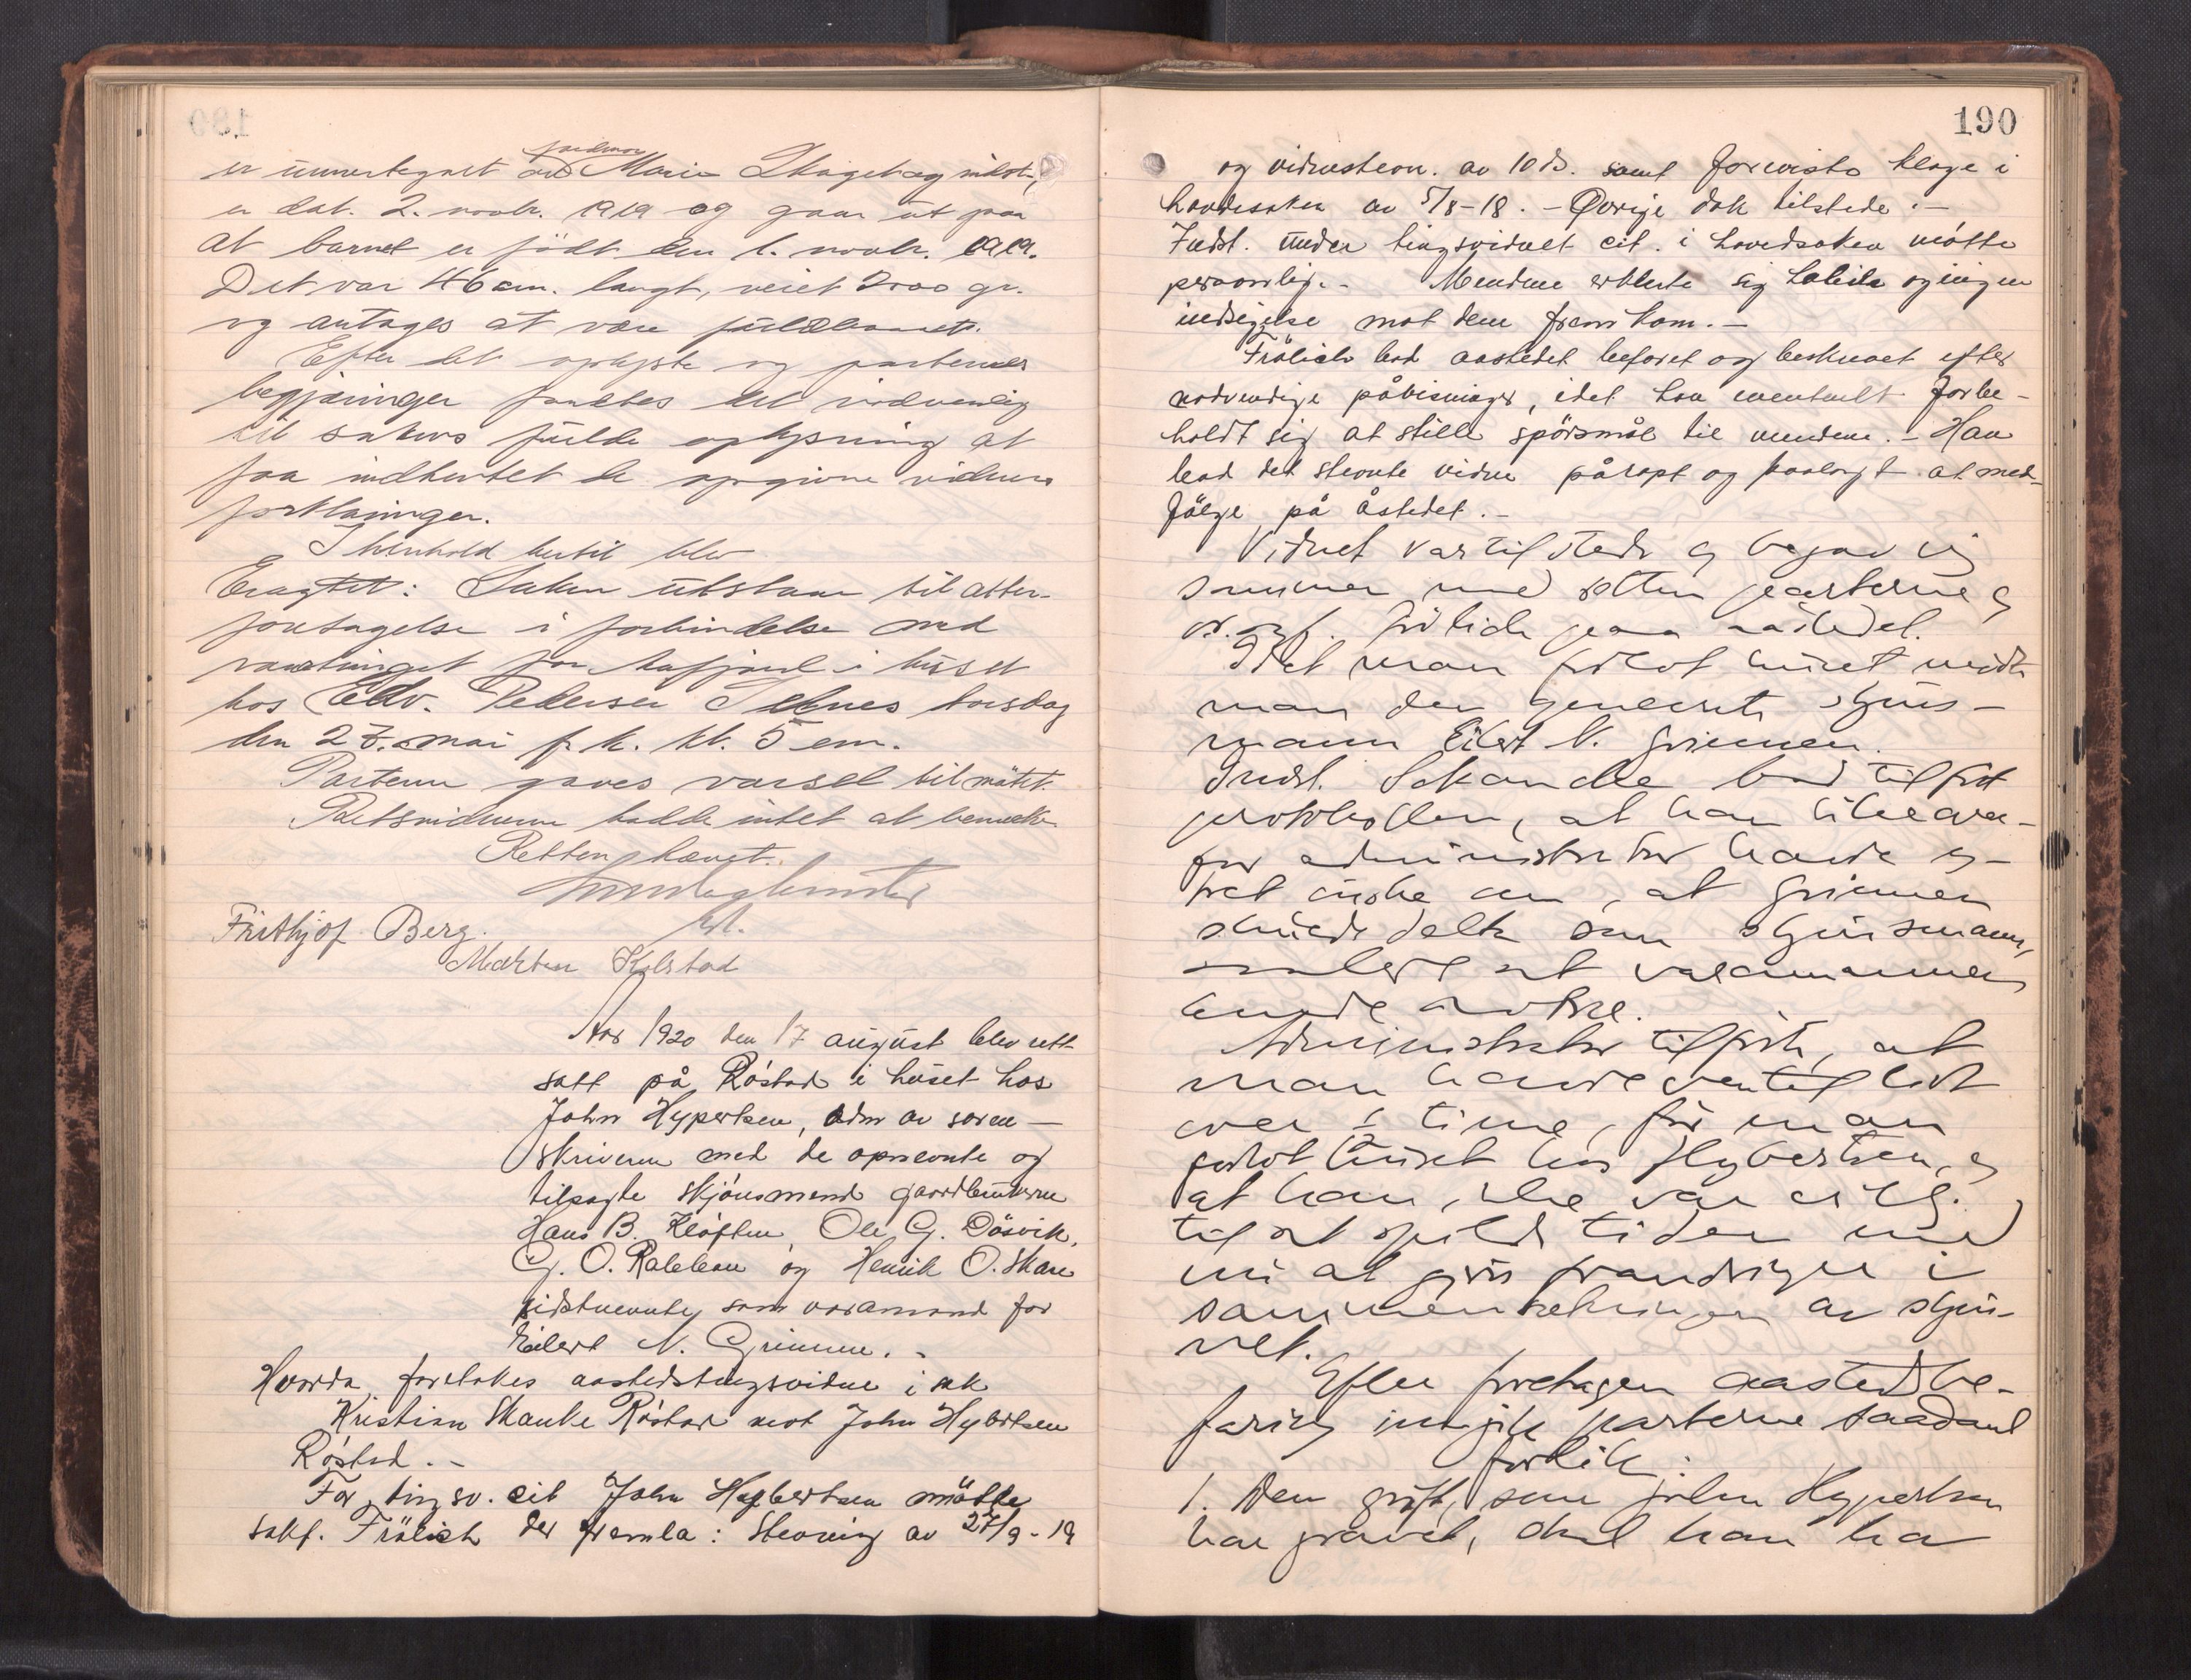 er unnertegnet av jordmor Marie
er dat. 2. novbr. 1919 og gaar ut paa
at barnet er født den 1. novbr. 1919.
Det var 46 cm. langt, veiet 2500 gr.
og antages at være fuldbaaret.
Efter det oplyste og parternes
begjæringer fandtes det nødvendig
til sakens fulde oplysning at
faa indhentet de opgivne vidners
forklaringer.
I henhold hertil blev
Eragtet: Saken utstaar til atter-
foretagelse i forbindelse med
vaartinget for i huset
hos Edv. Pedersen torsdag
den 27. mai f. k. kl. 5 em.
Parterne gaves varsel til møtet.
Retsvidnerne hadde intet at bemerke.
Retten hævet.
Frithjof Berg.
Morten Kolstad
Aar 1920 den 17 august blev rett
satt på Røstad i huset hos
John Hypertsen, adm av soren-
skriveren med de opnevnte og
tilsagte skjønsmend gaardbrukerne
Hans B. Kløften, Ole G. Døsvik,
G. O. Rabbaas og Henrik O. Skare
sidstnevnte som varamand for
Eilert N. Grimmen. -
Hvorda foretokes aastedstingsvidne i sak
Kristian Skanke Røstad mot John Hybertsen
Røstad. -
For tingsv. cit John Hybertsen møtte
sakf. Frölich der fremla: Stevning av 27/9-19
190
og vidnestevn. av 10 ds. samt forevisto klage i
hovedsaken av 5/8-18. - Øvrige dok tilstede. -
Indst. under tingsvidnet cit. i hovedsaken møtte
personlig. - Mendene erklerte sig habile og ingen
indsigelse mot dem fremkom. -
Frölich bad aastedet befaret og beskrevet efter
nødvendige påvisninger, idet han eventuelt forbe-
holdt sig at stille spörsmål til mendene. - Han
bad det stevnte vidne påropt og paalagt at med-
fölge på åstedet. -
Vidnet var tilstede og begav sig
sammen med retten parterne og
o.r.sakf. Frölich paa aastedet.
Idet man forlot huset mødte
man den opnevnte skjøns-
mann Eilert N. Grimmen.
Indst. Skancke bad tilført
protokollen, at han likeover-
for administrator havde ut-
talt ønske om, at Grimmen
skulde delta som skjønsmann,
saaledes at varamannen
kunde fratræ.
Administrator tilførte, at
man havde ventet litt
over ½ time, før man
forlot huset hos Hybertsen, og
at han ikke var villig
til at spilde tiden med
nu at gjøre forandringer i
sammensætningen av skjøn-
net.
Efter foretagen aastedsbe-
faring inngik parterne saadant
forlik:
1. Den grøft, som John Hypertsen
har gravet, skal han ha